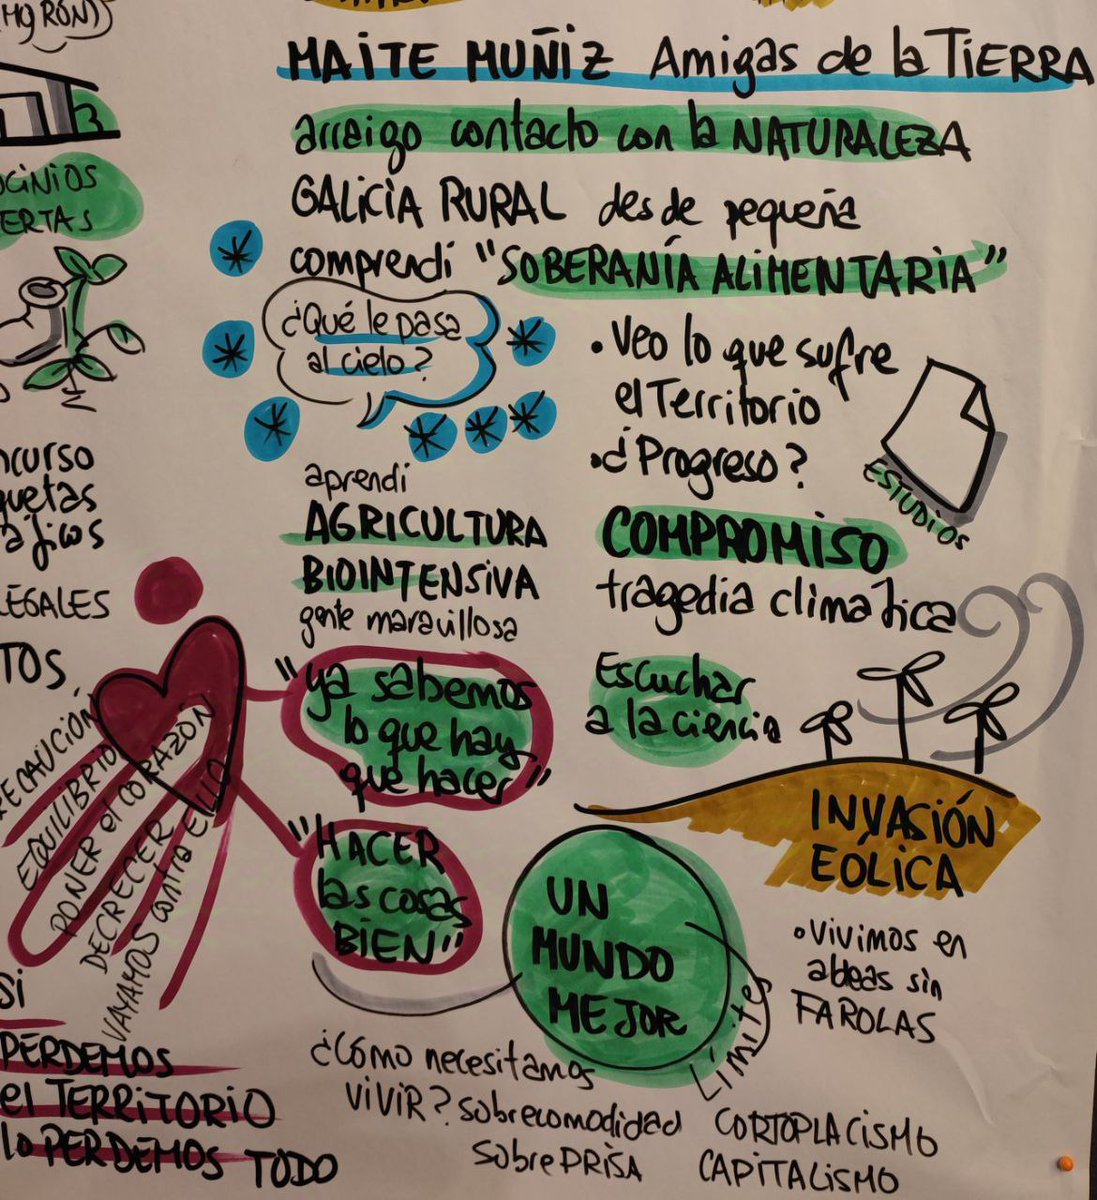 MAITE MUÑIZ Amigas de la TIERRA
arraigo contacto con la NATURALEZA
GALICIA RURAL desde pequeña
comprendi "SOBERANÍA ALIMENTARIA"
¿Qué le pasa
al cielo?
• Veo lo que sufre
el Territorio
• ¿Progreso?
ESTUDIOS
aprendi
AGRICULTURA
BIOINTENSIVA
gente maravillosa
COMPROMISO
tragedia climatica
Escuchar
a la ciencia
"ya sabemos
lo que hay
que hacer"
"HACER
las cosas
BIEN"
UN
MUNDO
MEJOR
Límites
INVASIÓN
EÓLICA
• Vivimos en
aldeas sin
FAROLAS
¿Cómo necesitamos
VIVIR? sobrecomodidad
sobre PRISA
CORTOPLACISMO
CAPITALISMO
ERTAS
LEGALES
TOS,
EQUILIBRIO
PONER el CORAZON
DECRECER
VAYAMOS contra ELLO
Si
PERDEMOS
el TERRITORIO
lo PERDEMOS TODO